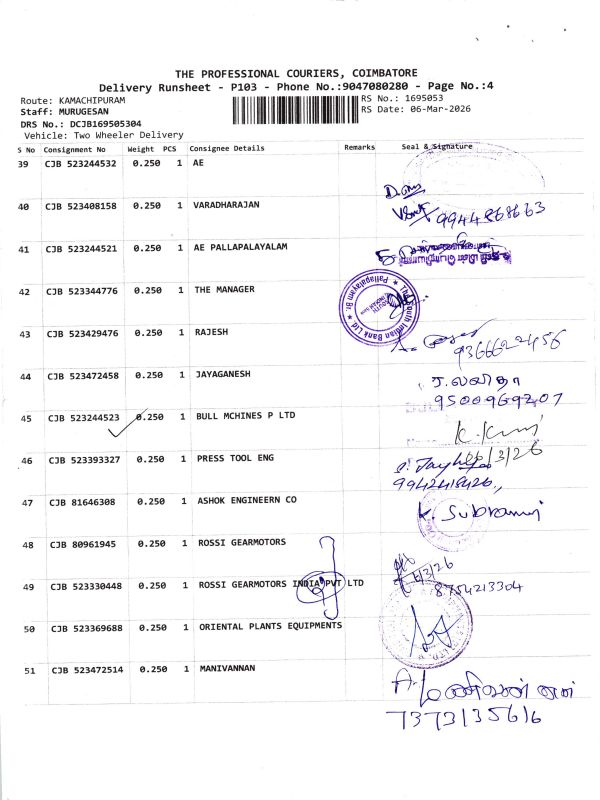 THE PROFESSIONAL COURIERS, COIMBATORE
Delivery Runsheet - P103 - Phone No.:9047080280 - Page No.:4
Route: KAMACHIPURAM
RS No.: 1695053
Staff: MURUGESAN
RS Date: 06-Mar-2026
DRS No.: DCJB169505304
Vehicle: Two Wheeler Delivery
S No Consignment No Weight PCS Consignee Details Remarks Seal & Signature
39 CJB 523244532 0.250 1 AE
40 CJB 523408158 0.250 1 VARADHARAJAN
9944868663
41 CJB 523244521 0.250 1 AE PALLAPALAYALAM
42 CJB 523344776 0.250 1 THE MANAGER
South Indian Bank Ltd. Pallapalayam Br.
43 CJB 523429476 0.250 1 RAJESH
9366622456
44 CJB 523472458 0.250 1 JAYAGANESH
ர.லலிதா
9500969207
45 CJB 523244523 0.250 1 BULL MCHINES P LTD
46 CJB 523393327 0.250 1 PRESS TOOL ENG
9942418426
47 CJB 81646308 0.250 1 ASHOK ENGINEERN CO
K. Subramani
48 CJB 80961945 0.250 1 ROSSI GEARMOTORS
49 CJB 523330448 0.250 1 ROSSI GEARMOTORS INDIA PVT LTD
8754213304
50 CJB 523369688 0.250 1 ORIENTAL PLANTS EQUIPMENTS
51 CJB 523472514 0.250 1 MANIVANNAN
7373135616